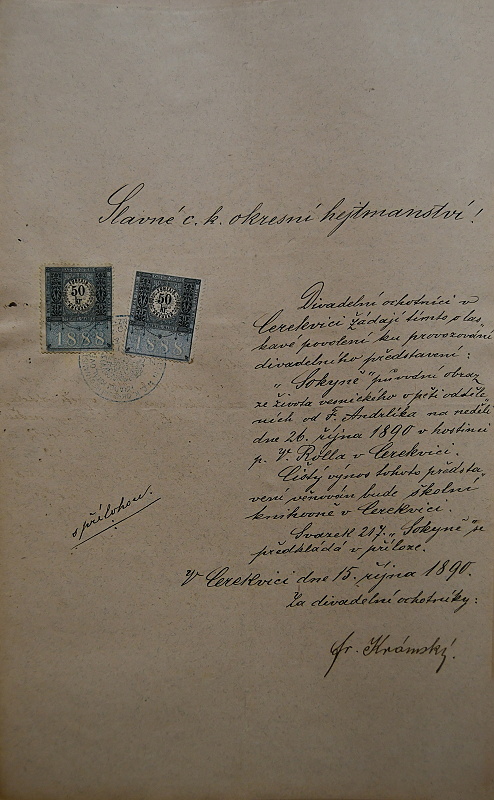 Slavné c. k. okresní hejtmanství!
50
kr
1888
50
kr
1888
Divadelní ochotníci v
Cerekvici žádají tímto o las„
kavé povolení ku provozování
divadelního představení:
„Sokyně" původní obraz
ze života vesnického o pěti odděle„
ních od F. Andrlíka na neděli
dne 26. října 1890 v hostinci
p. V. Rolla v Cerekvici.
Čistý výnos tohoto předsta„
vení věnován bude školní
knihovně v Cerekvici.
Svazek 217. „Sokyně" se
předkládá v příloze.
s přílohou.
V Cerekvici dne 15. října 1890.
Za divadelní ochotníky:
Fr. Krámský.